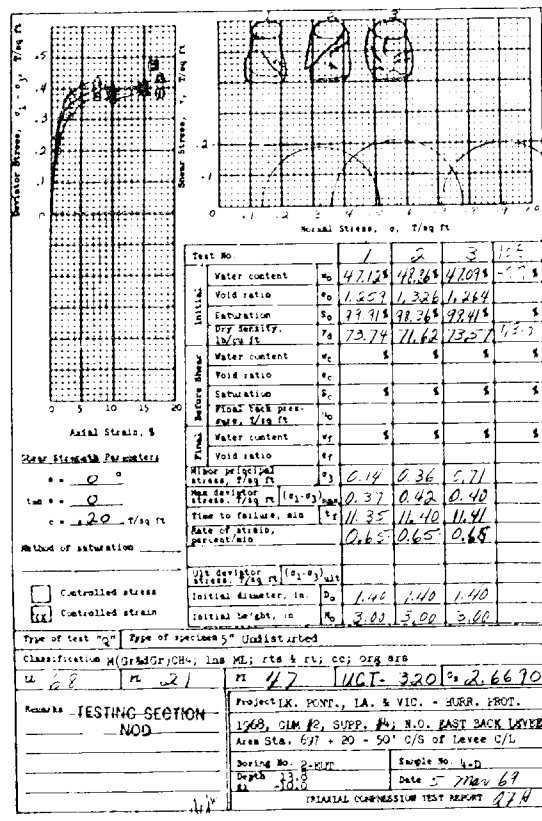 1 2 3
Deviator Stress, σ1 - σ3, T/sq ft
.5
.4
.3
.2
.1
0
0 5 10 15 20
Axial Strain, %
Shear Stress, τ, T/sq ft
.2
.1
0 .1 .2 .3 .4 .5 .6 .7 .8 .9 1.0
Normal Stress, σ, T/sq ft
Shear Strength Parameters
ø = 0 °
tan ø = 0
c = .20 T/sq ft
Method of saturation
Controlled stress
Controlled strain
Test No. 1 2 3
Initial
Water content wo 47.12% 48.86% 47.09% %
Void ratio eo 1.259 1.326 1.264
Saturation So 99.91% 98.36% 99.41% %
Dry density, lb/cu ft γd 73.74 71.62 73.57
Before Shear
Water content wc % % % %
Void ratio ec
Saturation Sc % % % %
Final back pressure, T/sq ft uo
Final
Water content wf % % % %
Void ratio ef
Minor principal stress, T/sq ft σ3 0.14 0.36 0.71
Max deviator stress, T/sq ft (σ1-σ3)max 0.37 0.42 0.40
Time to failure, min tf 11.35 11.40 11.41
Rate of strain, percent/min 0.65 0.65 0.65
Ult deviator stress, T/sq ft (σ1-σ3)ult
Initial diameter, in. Do 1.40 1.40 1.40
Initial height, in Ho 3.00 3.00 3.00
Type of test "Q" Type of specimen 5" Undisturbed
Classification M(Gr&dGr)CH4; lns ML; rts & rt; cc; org ars
LL 68 PL 21 PI 47 UCT- 320 Gs 2.6690
Remarks TESTING SECTION
NOD
Project LK. PONT., LA. & VIC. - HURR. PROT.
1968, GLM #2, SUPP. #4; N.O. EAST BACK LEVEE
Area Sta. 697 + 20 - 50' C/S of Levee C/L
Boring No. 2-EUT Sample No. 4-D
Depth 13.8
El -10.0
Date 5 Mar 69
TRIAXIAL COMPRESSION TEST REPORT